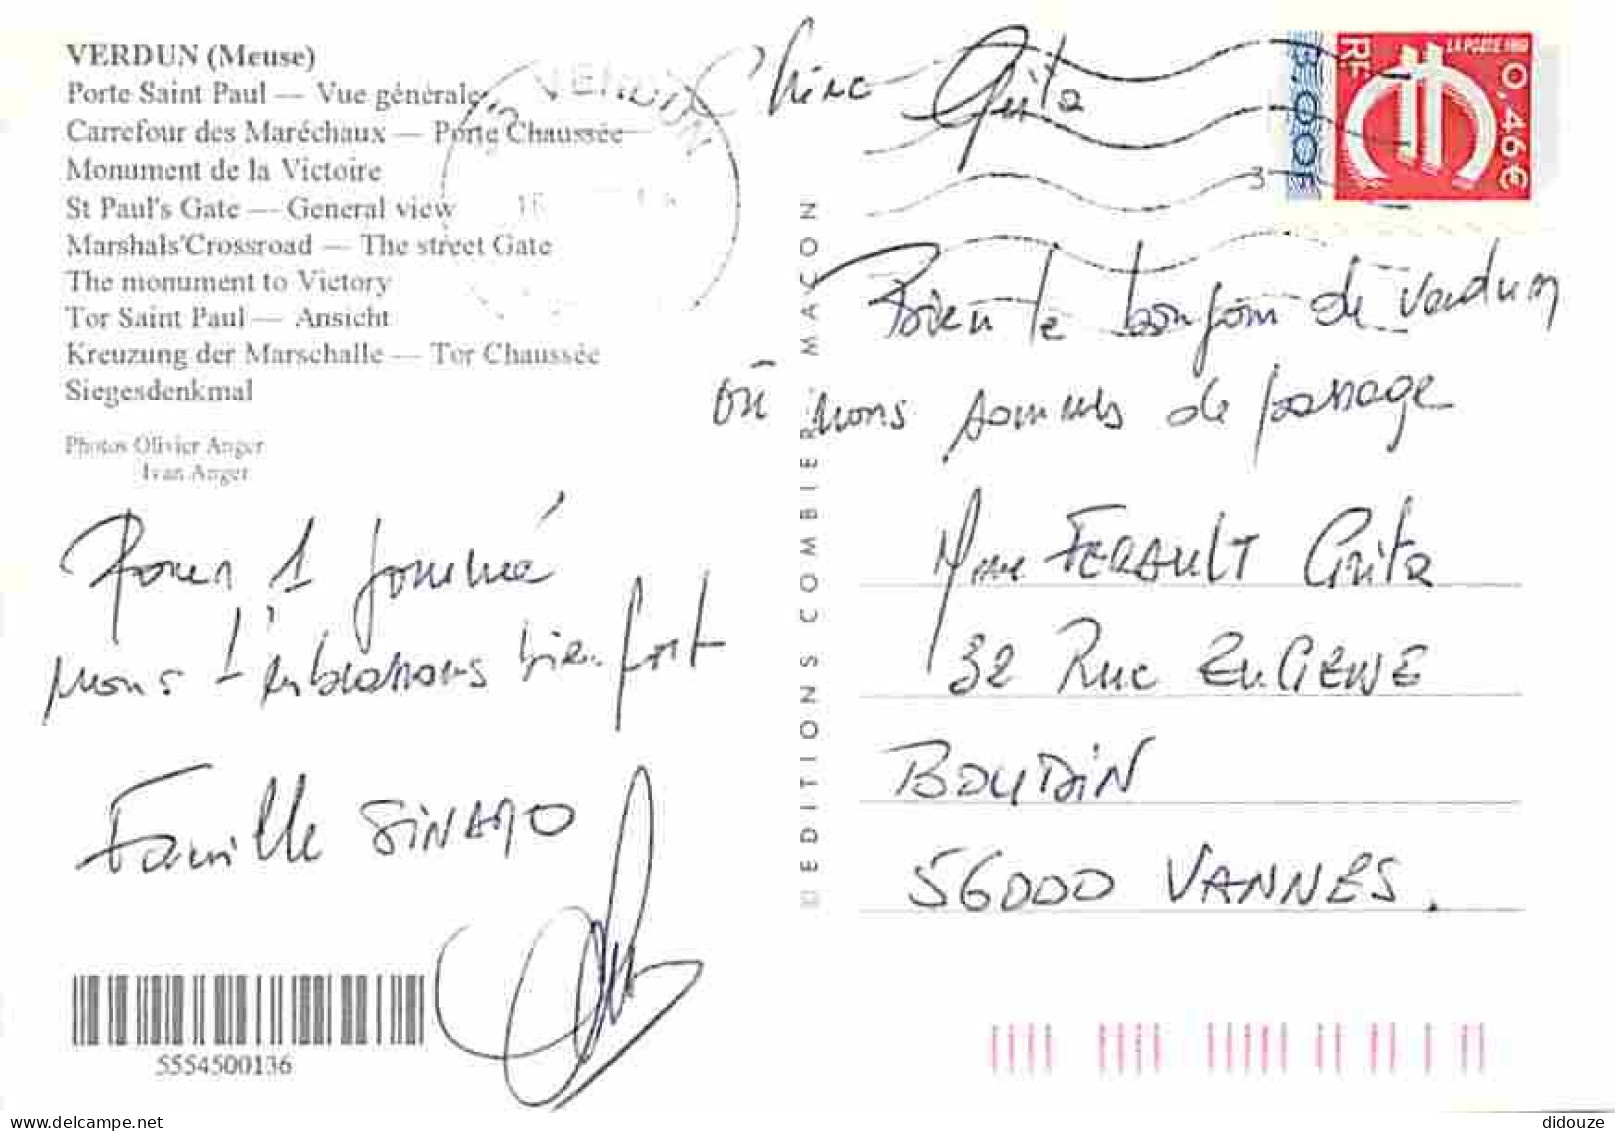 VERDUN (Meuse)
Porte Saint Paul — Vue générale
Carrefour des Maréchaux — Porte Chaussée
Monument de la Victoire
St Paul's Gate — General view
Marshals'Crossroad — The street Gate
The monument to Victory
Tor Saint Paul — Ansicht
Kreuzung der Marschalle — Tor Chaussée
Siegesdenkmal
Photos Olivier Anger
Ivan Anger
VERDUN
LA POSTE 1999
RF
0,46€
3,00F
Chère Guita
Bien le bonjour de Verdun
où nous sommes de passage
Pour 1 journée
nous t'embrassons bien fort
Famille
EDITIONS COMBIER MACON
Mme FERAULT Guita
32 Rue EUGENE
BOUDIN
56000 VANNES.
5554500136
www.delcampe.net
didouze